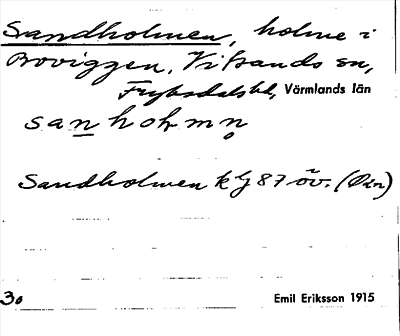 Sandholmen, holme i
Broviggen, Vitsands sn,
Fryksdals hd, Värmlands län
sanholmn
Sandholmen klj 87 öv. (Ön)
30
Emil Eriksson 1915